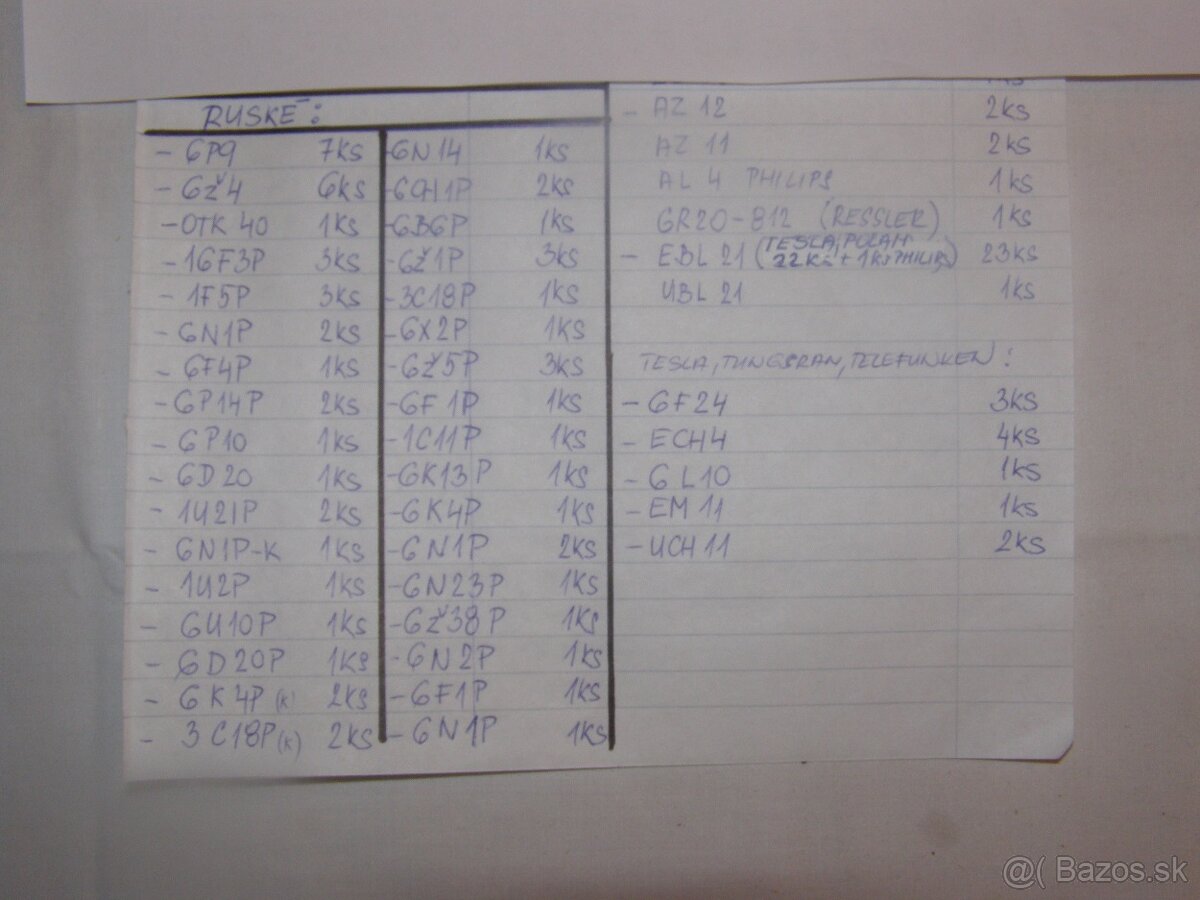 RUSKÉ:
- 6P9 7KS
- 6Ž4 6KS
- OTK 40 1KS
- 16F3P 3KS
- 1F5P 3KS
- 6N1P 2KS
- 6F4P 1KS
- 6P14P 2KS
- 6P10 1KS
- 6D20 1KS
- 1U21P 2KS
- 6N1P-K 1KS
- 1U2P 1KS
- 6U10P 1KS
- 6D20P 1KS
- 6K4P (K) 2KS
- 3C18P (K) 2KS
- 6N14 1KS
- 6CH1P 2KS
- 6B6P 1KS
- 6Ž1P 3KS
- 3C18P 1KS
- 6X2P 1KS
- 6Ž5P 3KS
- 6F1P 1KS
- 1C11P 1KS
- 6K13P 1KS
- 6K4P 1KS
- 6N1P 2KS
- 6N23P 1KS
- 6Ž38P 1KS
- 6N2P 1KS
- 6F1P 1KS
- 6N1P 1KS
- AZ 12 2KS
AZ 11 2KS
AL 4 PHILIPS 1KS
6R20-812 (RESSLER) 1KS
- EBL 21 (TESLA, POLAM 22KS + 1KS PHILIPS) 23KS
UBL 21 1KS
TESLA, TUNGSRAN, TELEFUNKEN:
- 6F24 3KS
- ECH4 4KS
- 6L10 1KS
- EM 11 1KS
- UCH 11 2KS
@( Bazos.sk